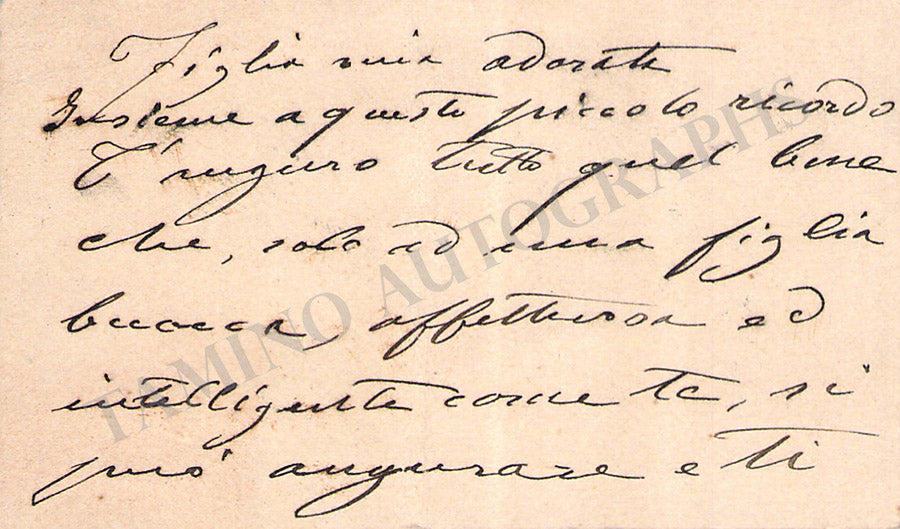 Figlia mia adorata
Insieme a questo piccolo ricordo
T'auguro tutto quel bene
che, solo ad una figlia
buona, affettuosa ed
intelligente come te, si
può augurare e ti
TAMINO AUTOGRAPHS